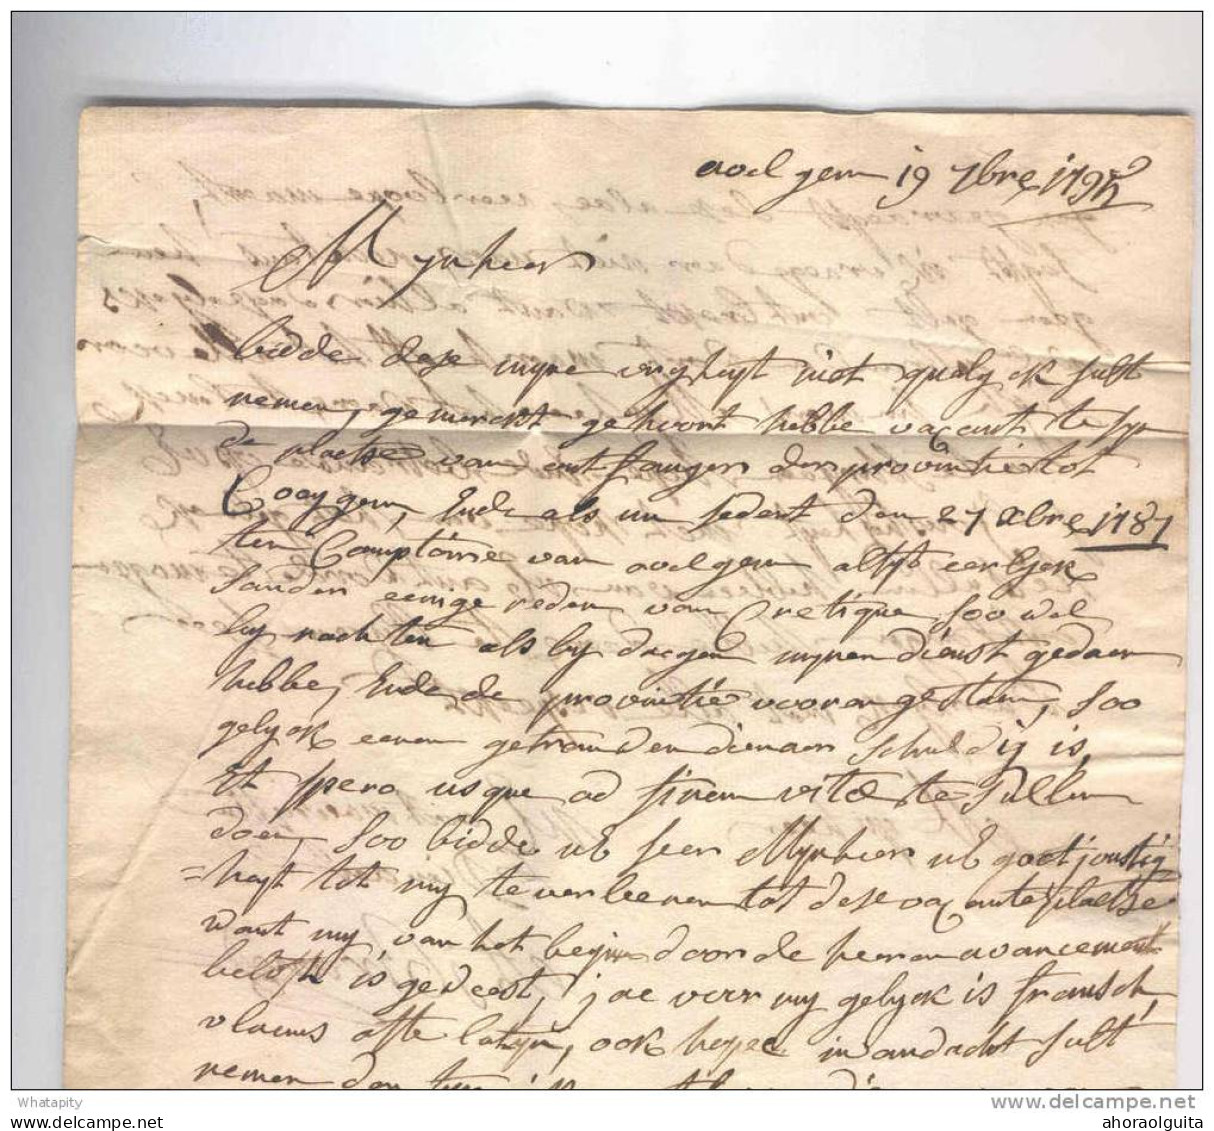 avelgem 19 7bre 179
Mynheer
bidde dese myne vryheyt niet qualyck sult
nemen, gemerckt gehoort hebbe vacant te syn
de plaetse van ontfanger der provintie tot
Cooygem, Ende als nu sedert den 27 xbre 1787
ten Comptoire van avelgem altyt eerlyck
sonder eenige reden van Cretique soo wel
by nachten als by daegen mynen dienst gedaen
hebbe, Ende de provintie voorengestaen, soo
gelyck eenen getrouwen dienaer schuldig is,
Et spero usque ad finem vitæ te sullen
doen, soo bidde ul seer Mynheer ul goetjonstig
=heyt tot my te verleenen tot dese vacante plaetse
want my van het begin door de heeren avancement
belooft is geweest, jae voor my gelyck is fransch,
vlaems ofte latyn, ook in andacht sult
nemen den
Whatapity
delcampe.net
ahoraolguita